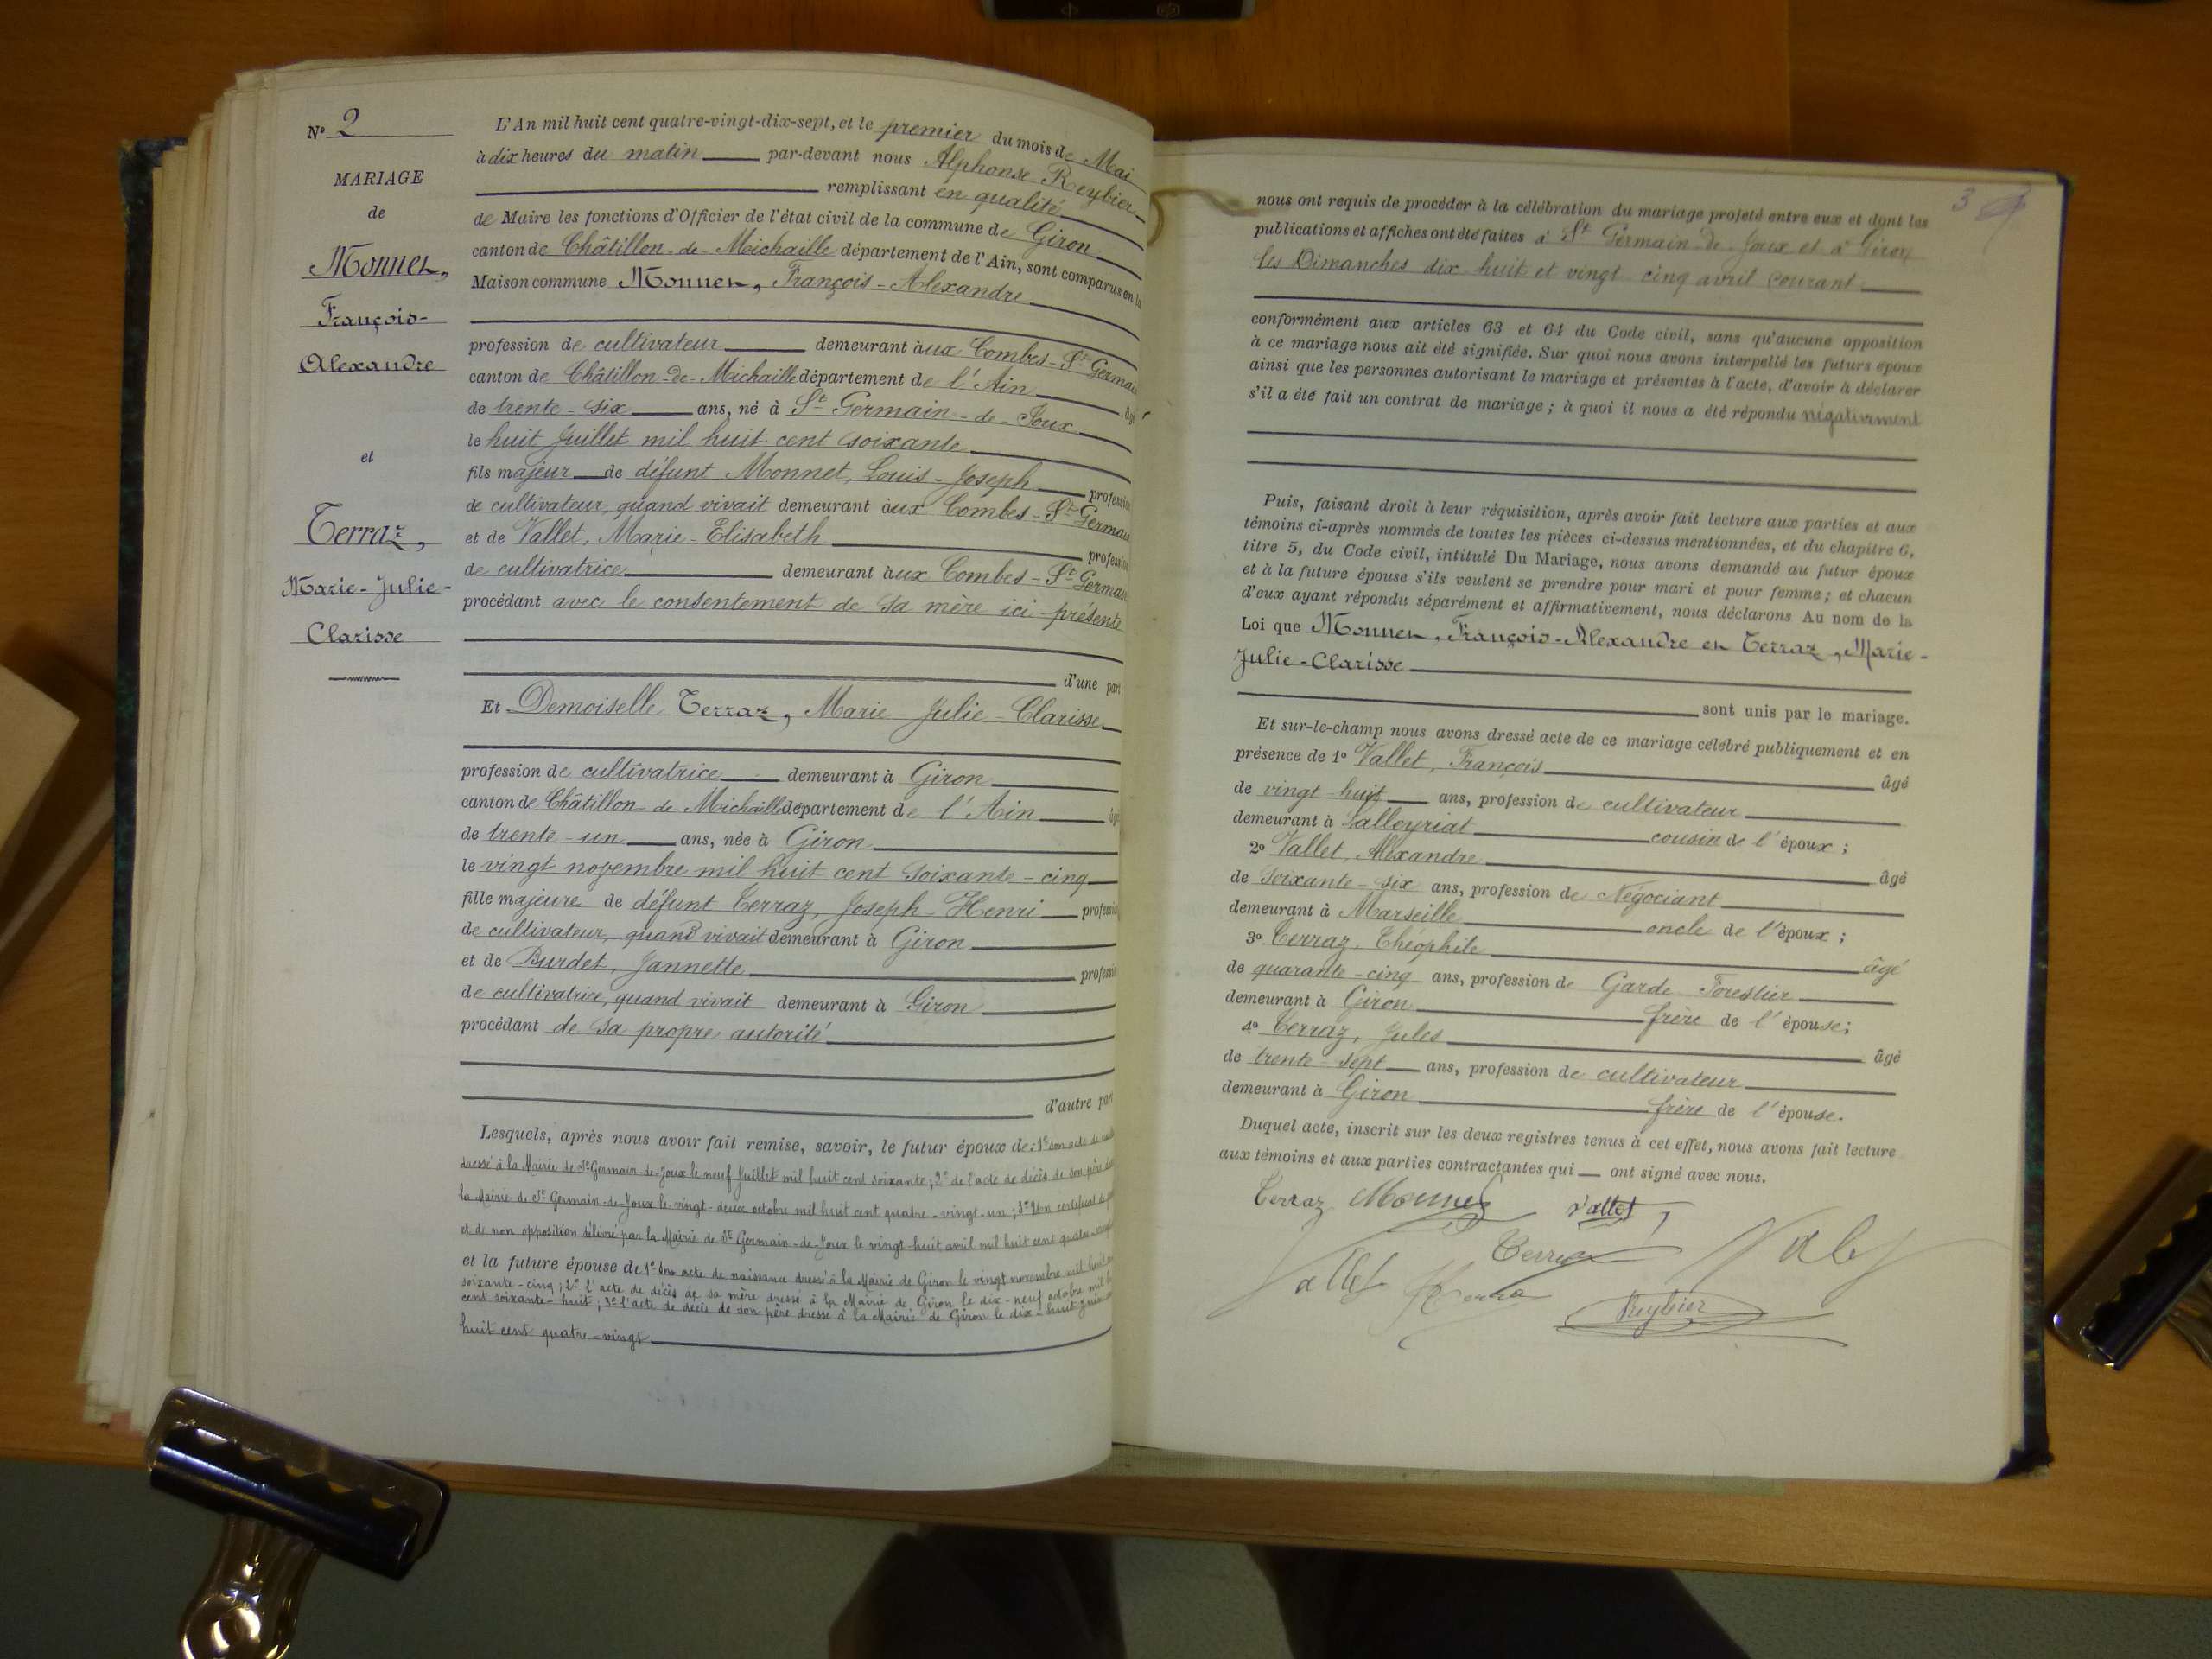 N° 2
MARIAGE
de
Monnet,
François-
Alexandre
et
Terraz,
Marie-Julie-
Clarisse
L'An mil huit cent quatre-vingt-dix-sept, et le premier du mois de Mai
à dix heures du matin par-devant nous Alphonse Reybier
remplissant en qualité
de Maire les fonctions d'Officier de l'état civil de la commune de Giron
canton de Châtillon-de-Michaille département de l'Ain, sont comparus en la
Maison commune Monnet, François-Alexandre
profession de cultivateur demeurant aux Combes-St Germain
canton de Châtillon-de-Michaille département de l'Ain âgé
de trente-six ans, né à St Germain-de-Joux
le huit Juillet mil huit cent soixante
fils majeur de défunt Monnet, Louis-Joseph profession
de cultivateur, quand vivait demeurant aux Combes-St Germain
et de Vallet, Marie-Elisabeth profession
de cultivatrice demeurant aux Combes-St Germain
procédant avec le consentement de sa mère ici présente
d'une part
Et Demoiselle Terraz, Marie-Julie-Clarisse
profession de cultivatrice demeurant à Giron
canton de Châtillon-de-Michaille département de l'Ain âgé
de trente-un ans, née à Giron
le vingt novembre mil huit cent soixante-cinq
fille majeure de défunt Terraz, Joseph-Henri profession
de cultivateur, quand vivait demeurant à Giron
et de Burdet, Jannette profession
de cultivatrice, quand vivait demeurant à Giron
procédant de sa propre autorité
d'autre part
Lesquels, après nous avoir fait remise, savoir, le futur époux de: 1° son acte de
dressé à la Mairie de St Germain-de-Joux le neuf Juillet mil huit cent soixante; 2° de l'acte de décès de son père
la Mairie de St Germain-de-Joux le vingt-deux octobre mil huit cent quatre-vingt-un; 3° Un certificat de
et de non opposition délivré par la Mairie de St Germain-de-Joux le vingt-huit avril mil huit cent quatre-
et la future épouse de 1° Son acte de naissance dressé à la Mairie de Giron le vingt novembre mil huit
soixante-cinq; 2° l'acte de décès de sa mère dressé à la Mairie de Giron le dix-neuf octobre mil
cent soixante-huit; 3° l'acte de décès de son père dressé à la Mairie de Giron le dix-huit juin
huit cent quatre-vingt
3
nous ont requis de procéder à la célébration du mariage projeté entre eux et dont les
publications et affiches ont été faites à St Germain-de-Joux et à Giron
les Dimanches dix huit et vingt cinq avril courant
conformément aux articles 63 et 64 du Code civil, sans qu'aucune opposition
à ce mariage nous ait été signifiée. Sur quoi nous avons interpellé les futurs époux
ainsi que les personnes autorisant le mariage et présentes à l'acte, d'avoir à déclarer
s'il a été fait un contrat de mariage; à quoi il nous a été répondu négativement
Puis, faisant droit à leur réquisition, après avoir fait lecture aux parties et aux
témoins ci-après nommés de toutes les pièces ci-dessus mentionnées, et du chapitre 6,
titre 5, du Code civil, intitulé Du Mariage, nous avons demandé au futur époux
et à la future épouse s'ils veulent se prendre pour mari et pour femme; et chacun
d'eux ayant répondu séparément et affirmativement, nous déclarons Au nom de la
Loi que Monnet, François-Alexandre et Terraz, Marie-
Julie-Clarisse
sont unis par le mariage.
Et sur-le-champ nous avons dressé acte de ce mariage célébré publiquement et en
présence de 1° Vallet, François âgé
de vingt-huit ans, profession de cultivateur
demeurant à Lalleyriat cousin de l'époux;
2° Vallet, Alexandre âgé
de soixante-six ans, profession de Négociant
demeurant à Marseille oncle de l'époux;
3° Terraz, Théophile âgé
de quarante-cinq ans, profession de Garde Forestier
demeurant à Giron frère de l'épouse;
4° Terraz, Jules âgé
de trente-sept ans, profession de cultivateur
demeurant à Giron frère de l'épouse.
Duquel acte, inscrit sur les deux registres tenus à cet effet, nous avons fait lecture
aux témoins et aux parties contractantes qui ont signé avec nous.
Terraz Monnet Vallet
Terraz
Vallet
Reybier